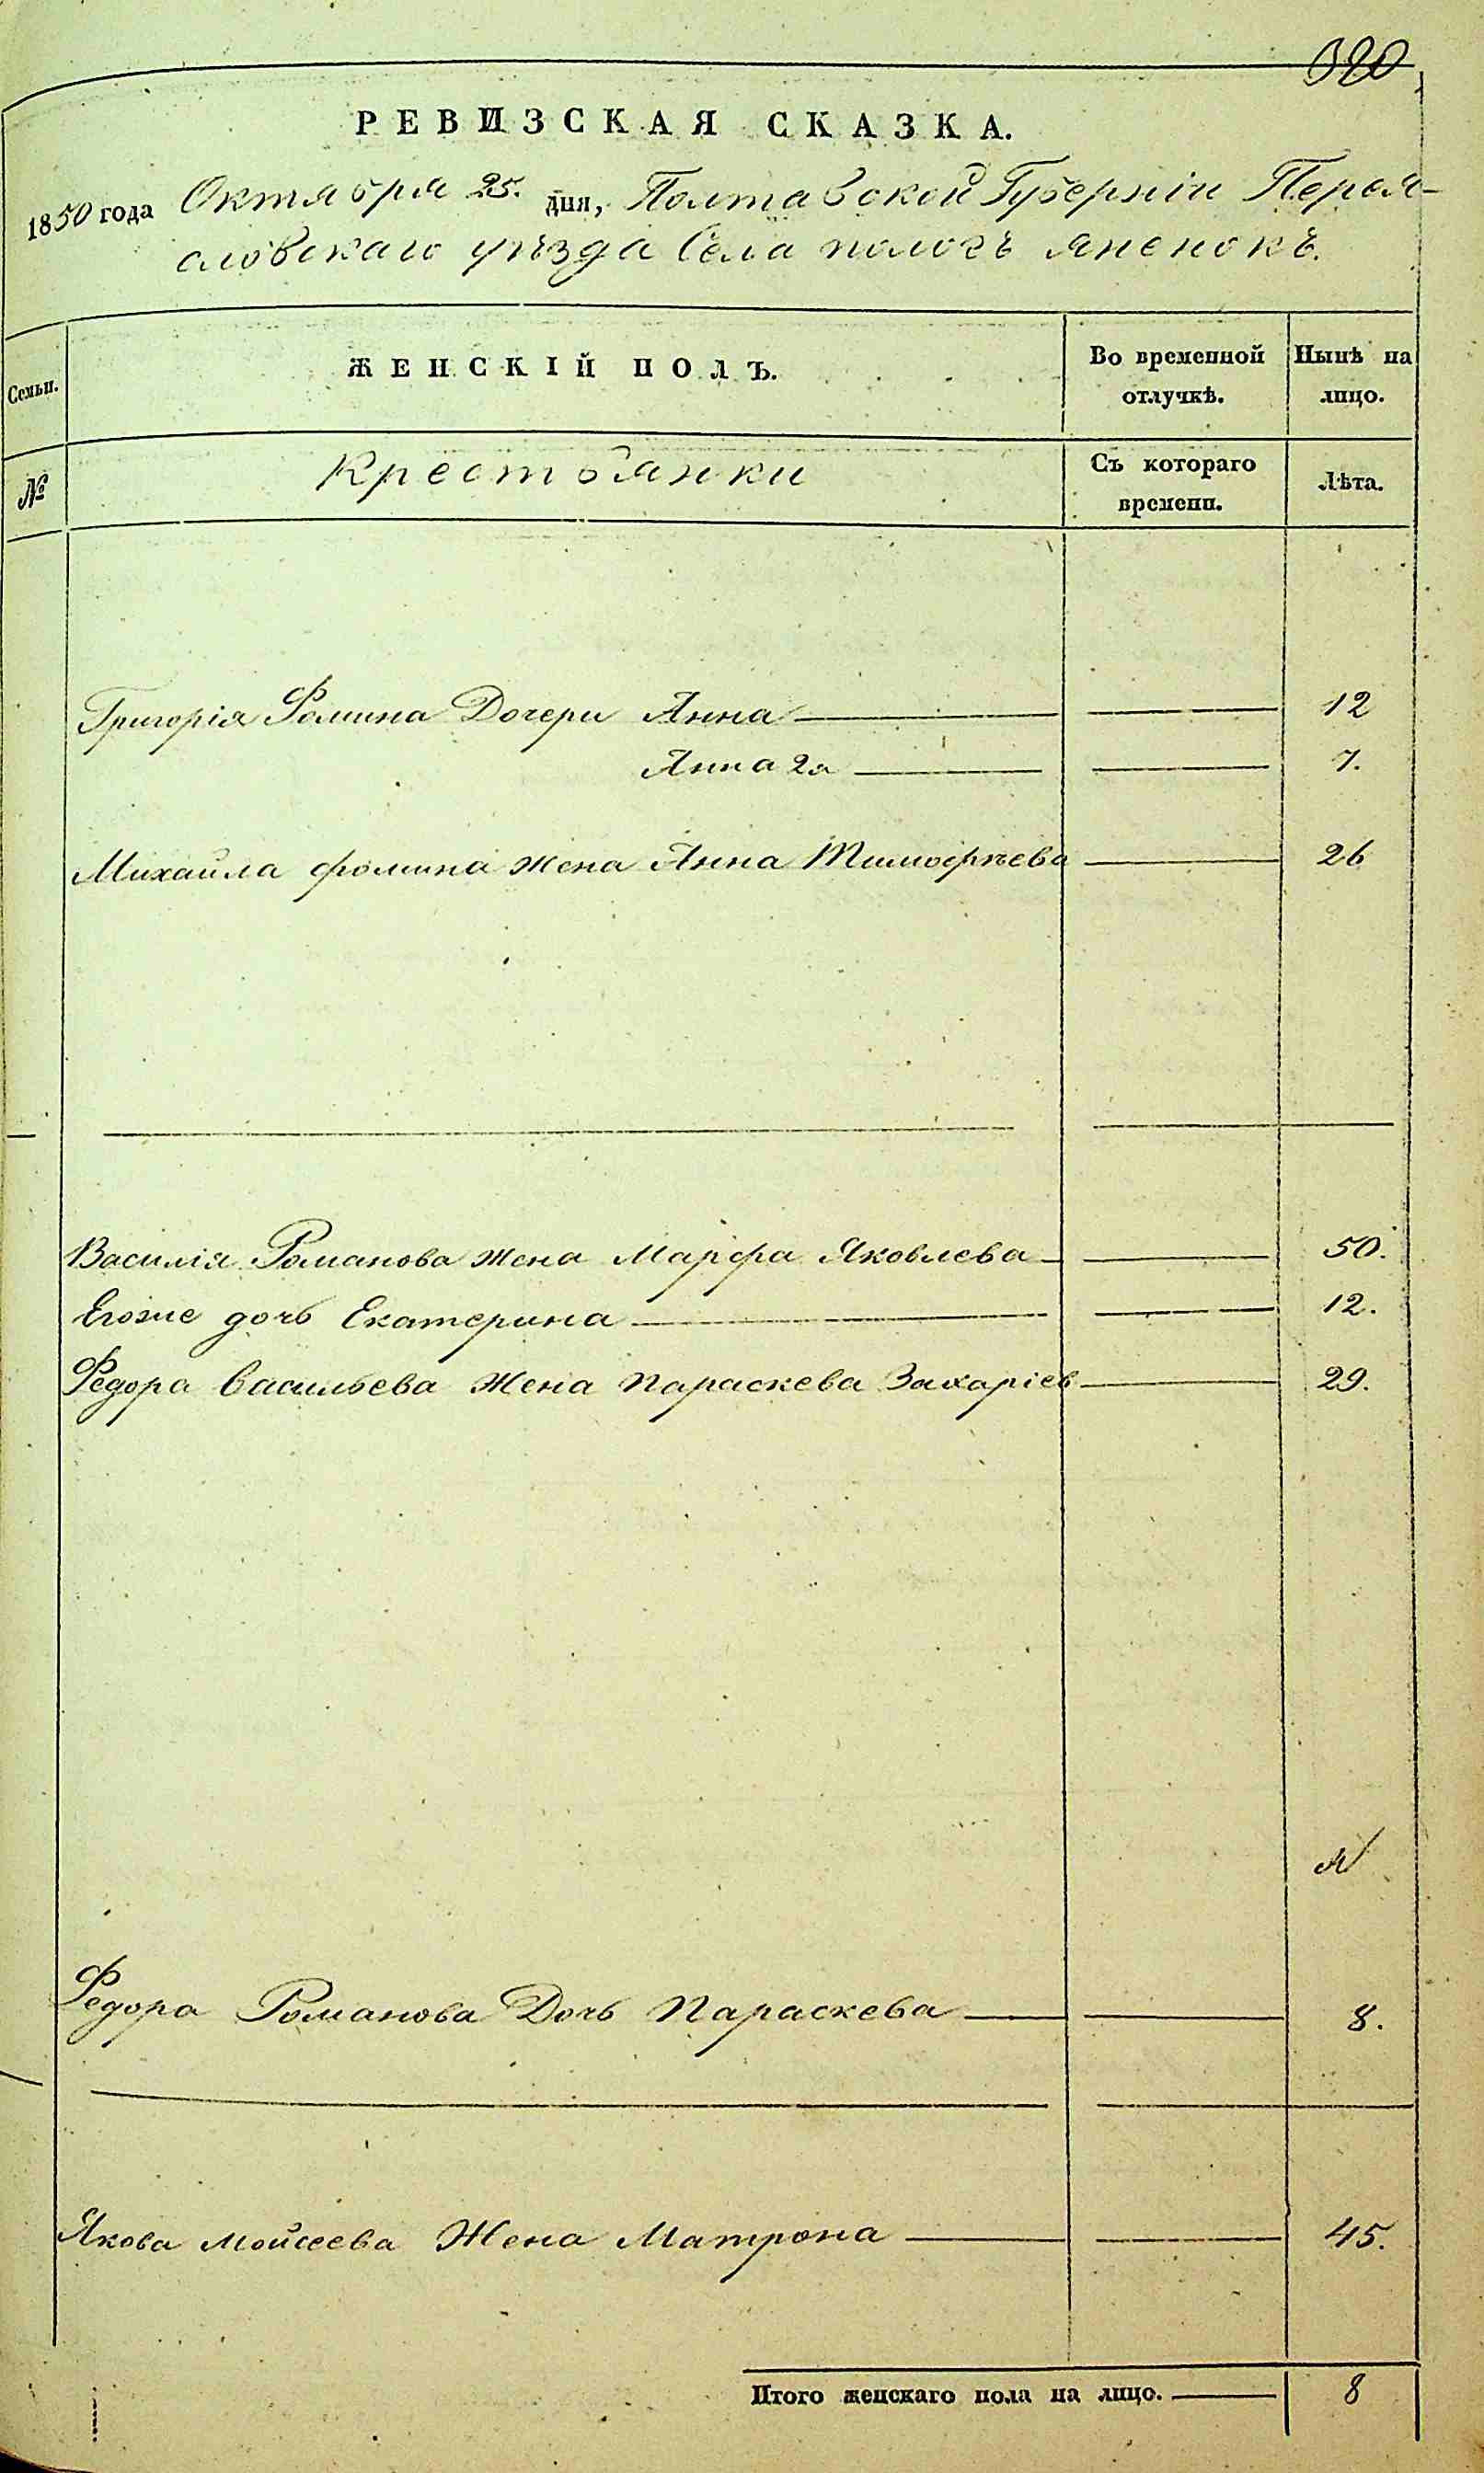 320
РЕВИЗСКАЯ СКАЗКА.
1850 года Октября 25. дня, Полтавской Губерніи Перея-
словскаго уѣзда Села пологъ яненокъ.
Семьи.
ЖЕНСКІЙ ПОЛЪ.
Во временной отлучкѣ.
Нынѣ на лицо.
№
Крестьянки
Съ котораго времени.
Лѣта.
Григорія Фомина Дочери Анна 12
Анна 2я 7.
Михайла фомина жена Анна Тимофѣева 26
Василія Романова жена Марфа Яковлева 50.
Егоже дочь Екатерина 12.
Федора Васильева Жена Параскева Захаріев 29.
Федора Романова Дочь Параскева 8.
Якова Мойсеева Жена Матрона 45.
Итого женскаго пола на лицо. 8